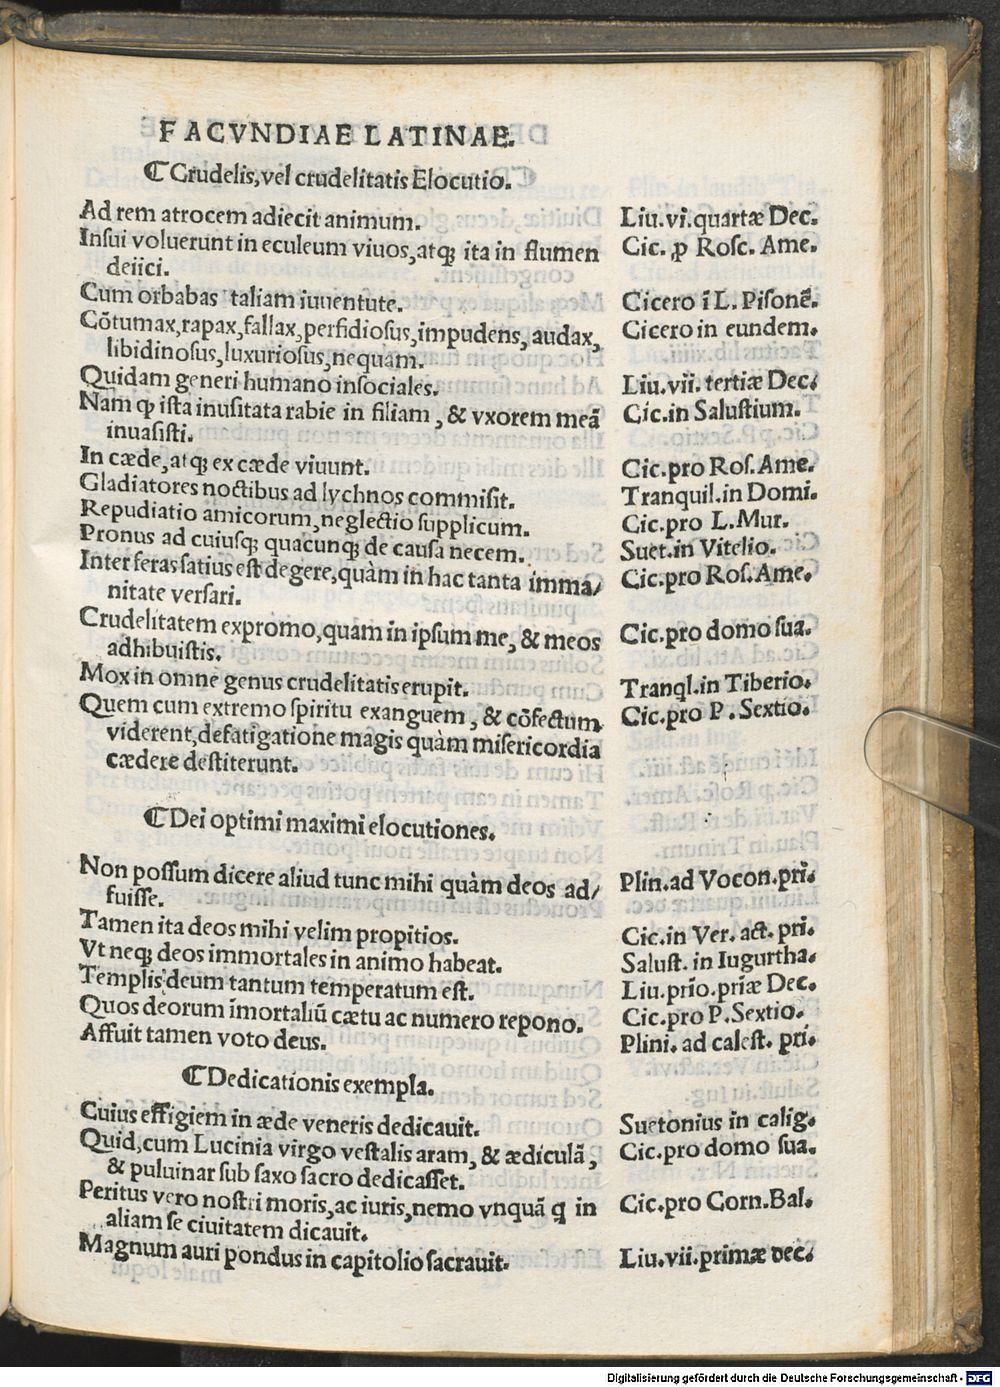 FACVNDIAE LATINAE.
¶ Crudelis, vel crudelitatis Elocutio.
Ad rem atrocem adiecit animum. Liu. vi. quartæ Dec.
Insui voluerunt in eculeum viuos, atqꝫ ita in flumen Cic. ꝓ Rosc. Ame.
deiici.
Cum orbabas taliam iuuentute. Cicero ī L. Pisonē.
Cōtumax, rapax, fallax, perfidiosus, impudens, audax, Cicero in eundem.
libidinosus, luxuriosus, nequam.
Quidam generi humano insociales. Liu. vii. tertiæ Dec.
Nam ꝙ ista inusitata rabie in filiam, & vxorem meā Cic. in Salustium.
inuasisti.
In cæde, atqꝫ ex cæde viuunt. Cic. pro Ros. Ame.
Gladiatores noctibus ad lychnos commisit. Tranquil. in Domi.
Repudiatio amicorum, neglectio supplicum. Cic. pro L. Mur.
Pronus ad cuiusqꝫ quacunqꝫ de causa necem. Suet. in Vitelio.
Inter feras satius est degere, quàm in hac tanta imma/ Cic. pro Ros. Ame.
nitate versari.
Crudelitatem expromo, quam in ipsum me, & meos Cic. pro domo sua.
adhibuistis.
Mox in omne genus crudelitatis erupit. Tranql. in Tiberio.
Quem cum extremo spiritu exanguem, & cōfectum Cic. pro P. Sextio.
viderent, defatigatione magis quàm misericordia
cædere destiterunt.
¶ Dei optimi maximi elocutiones.
Non possum dicere aliud tunc mihi quàm deos ad/ Plin. ad Vocon. pri.
fuisse.
Tamen ita deos mihi velim propitios. Cic. in Ver. act. pri.
Vt neqꝫ deos immortales in animo habeat. Salust. in Iugurtha.
Templis deum tantum temperatum est. Liu. prīo. prīæ Dec.
Quos deorum īmortaliū cætu ac numero repono. Cic. pro P. Sextio.
Affuit tamen voto deus. Plini. ad calest. pri.
¶ Dedicationis exempla.
Cuius effigiem in æde veneris dedicauit. Suetonius in calig.
Quid, cum Lucinia virgo vestalis aram, & ædiculā, Cic. pro domo sua.
& puluinar sub saxo sacro dedicasset.
Peritus vero nostri moris, ac iuris, nemo vnquā q in Cic. pro Corn. Bal.
aliam se ciuitatem dicauit.
Magnum auri pondus in capitolio sacrauit. Liu. vii. primæ dec.
Digitalisierung gefördert durch die Deutsche Forschungsgemeinschaft - DFG